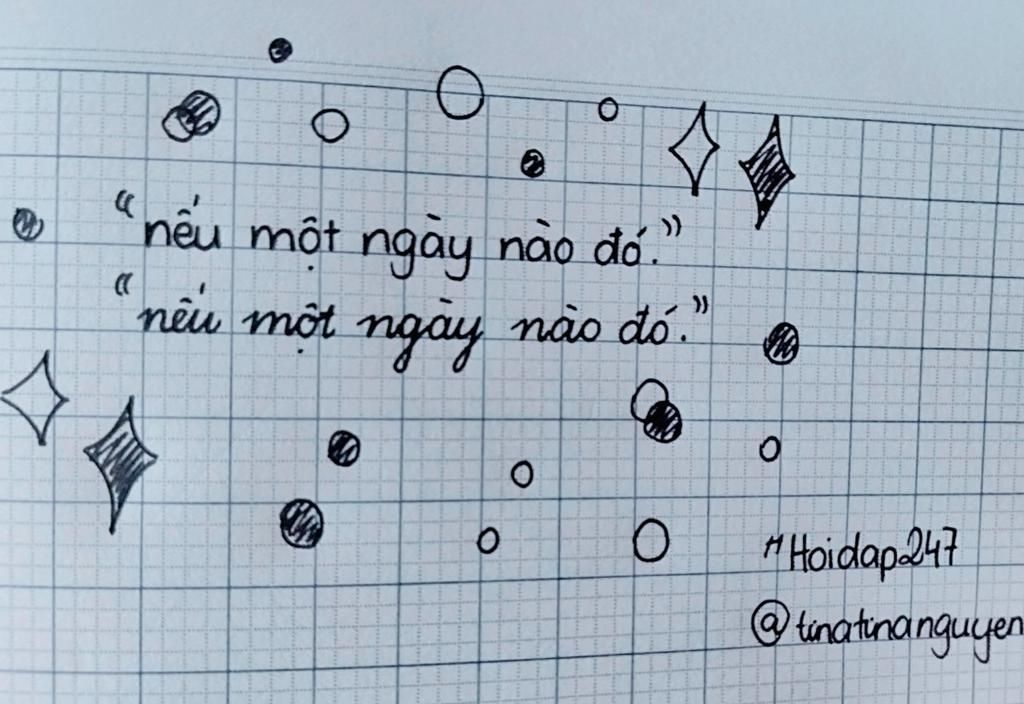 “nếu một ngày nào đó.”
“nếu một ngày nào đó.”
#Hoidap247
@tinatinanguyen